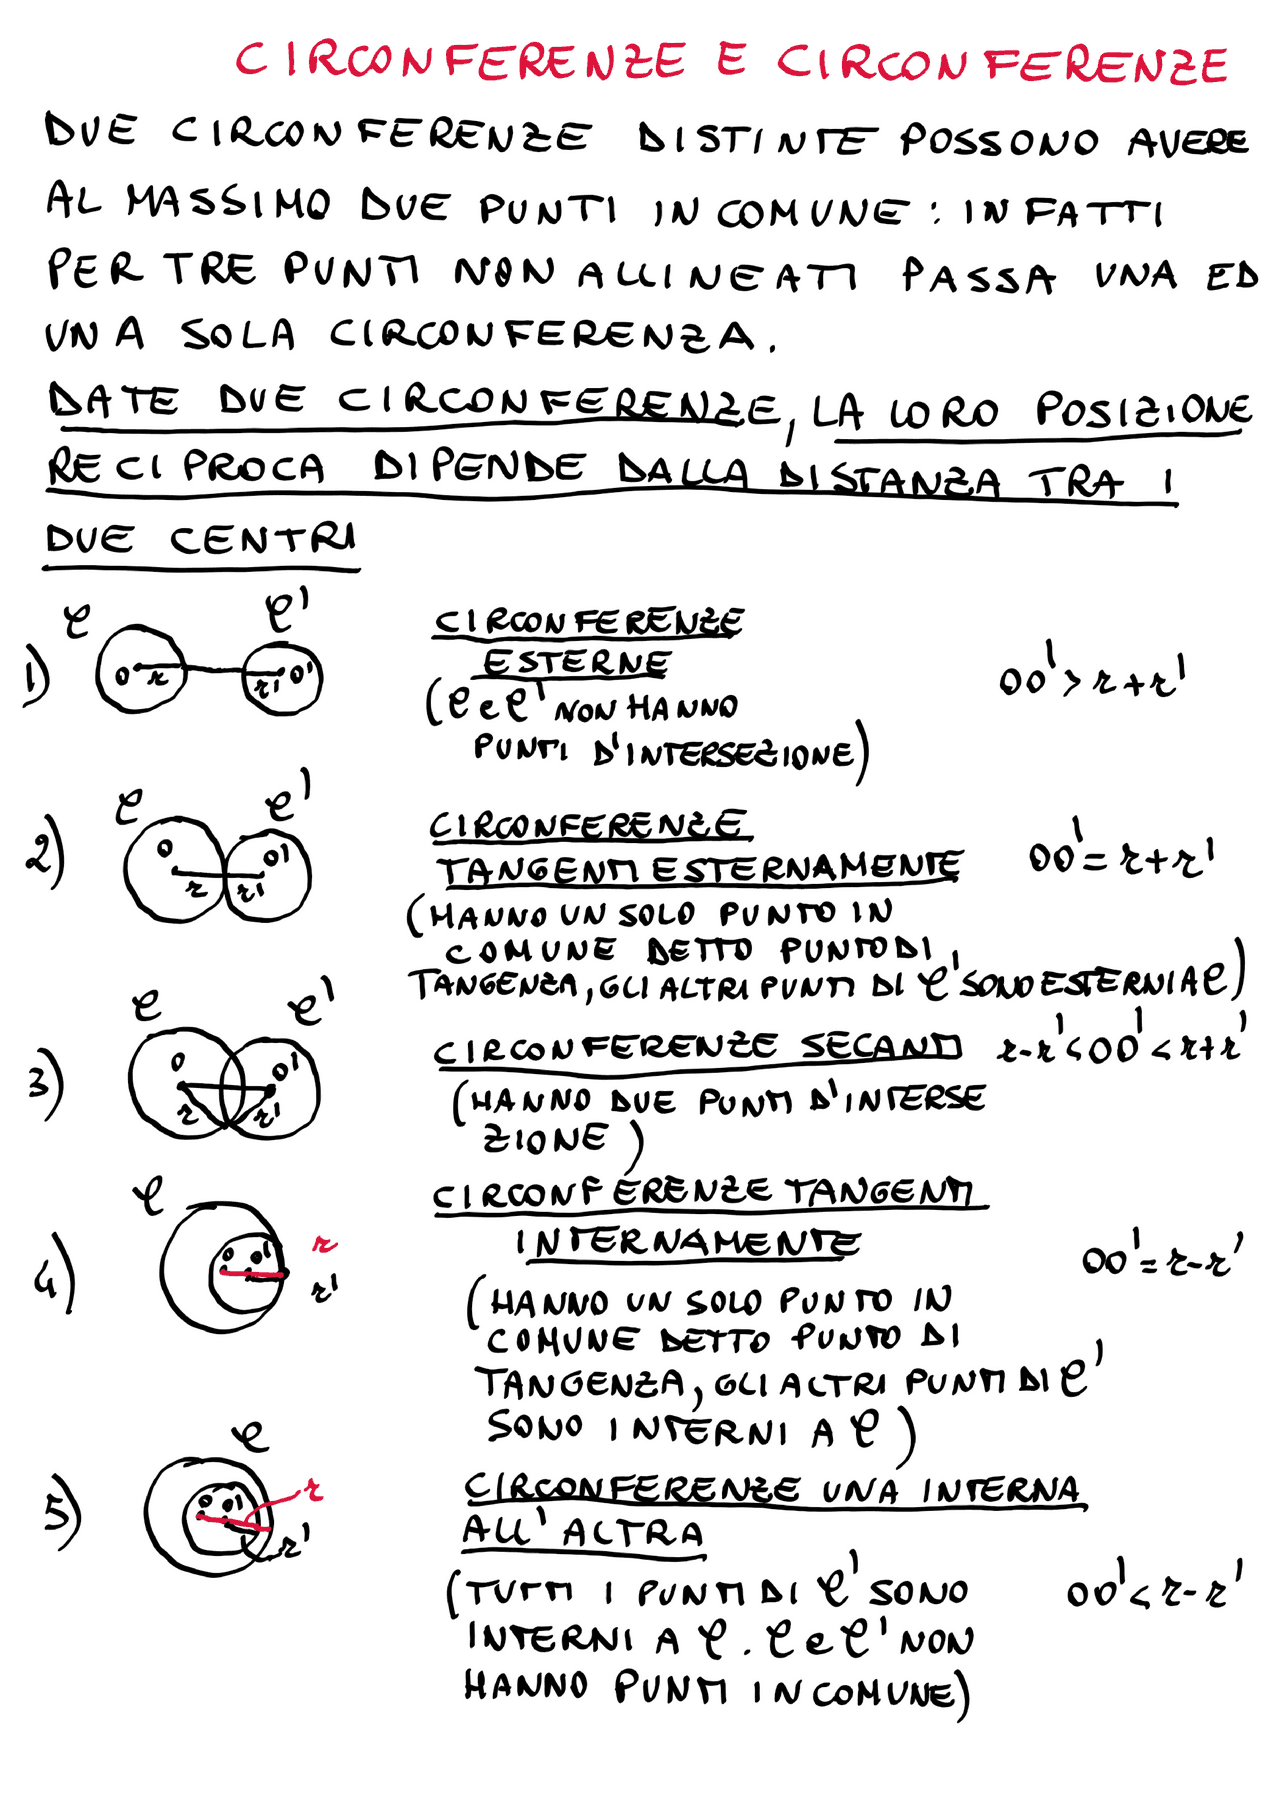 CIRCONFERENZE E CIRCONFERENZE
DUE CIRCONFERENZE DISTINTE POSSONO AVERE
AL MASSIMO DUE PUNTI IN COMUNE: INFATTI
PER TRE PUNTI NON ALLINEATI PASSA UNA ED
UNA SOLA CIRCONFERENZA.
DATE DUE CIRCONFERENZE, LA LORO POSIZIONE
RECIPROCA DIPENDE DALLA DISTANZA TRA I
DUE CENTRI
1) C C' O r r' O'
CIRCONFERENZE
ESTERNE
(C e C' NON HANNO
PUNTI D'INTERSEZIONE)
OO' > r + r'
2) C C' O O' r r'
CIRCONFERENZE
TANGENTI ESTERNAMENTE
OO' = r + r'
(HANNO UN SOLO PUNTO IN
COMUNE DETTO PUNTO DI
TANGENZA, GLI ALTRI PUNTI DI C' SONO ESTERNI A C)
3) C C' O O' r r'
CIRCONFERENZE SECANTI r-r' < OO' < r+r'
(HANNO DUE PUNTI D'INTERSE
ZIONE)
4) C O O' r r'
CIRCONFERENZE TANGENTI
INTERNAMENTE
OO' = r-r'
(HANNO UN SOLO PUNTO IN
COMUNE DETTO PUNTO DI
TANGENZA, GLI ALTRI PUNTI DI C'
SONO INTERNI A C)
5) C O O' r r'
CIRCONFERENZE UNA INTERNA
ALL'ALTRA
(TUTTI I PUNTI DI C' SONO
INTERNI A C. C e C' NON
HANNO PUNTI IN COMUNE)
OO' < r-r'